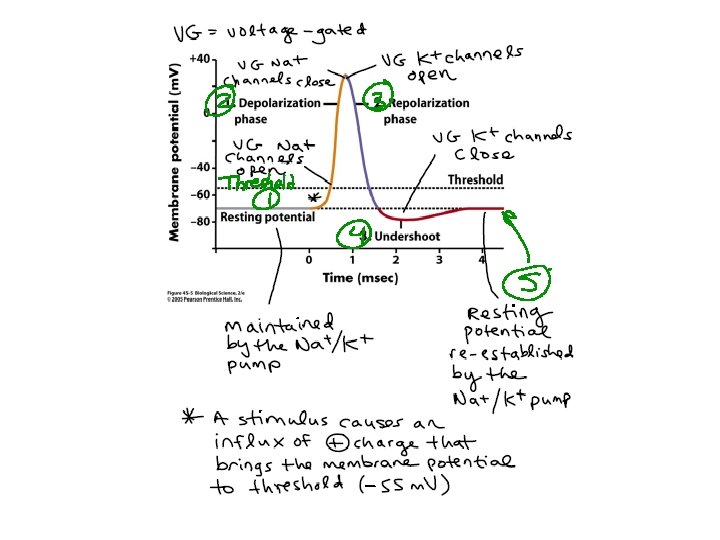 VG = voltage-gated
+40
VG Na+
channels close
VG K+ channels
open
2
1. Depolarization
phase
3
2. Repolarization
phase
0
VG Na+
channels
open
VG K+ channels
close
Membrane potential (mV)
-40
Threshold
Threshold
-60
1
Resting potential
-80
4
3. Undershoot
0 1 2 3 4
5
Time (msec)
Figure 45-5 Biological Science, 2/e
© 2005 Pearson Prentice Hall, Inc.
Maintained
by the Na+/K+
pump
Resting
potential
re-established
by the
Na+/K+ pump
* A stimulus causes an
influx of + charge that
brings the membrane potential
to threshold (-55 mV)